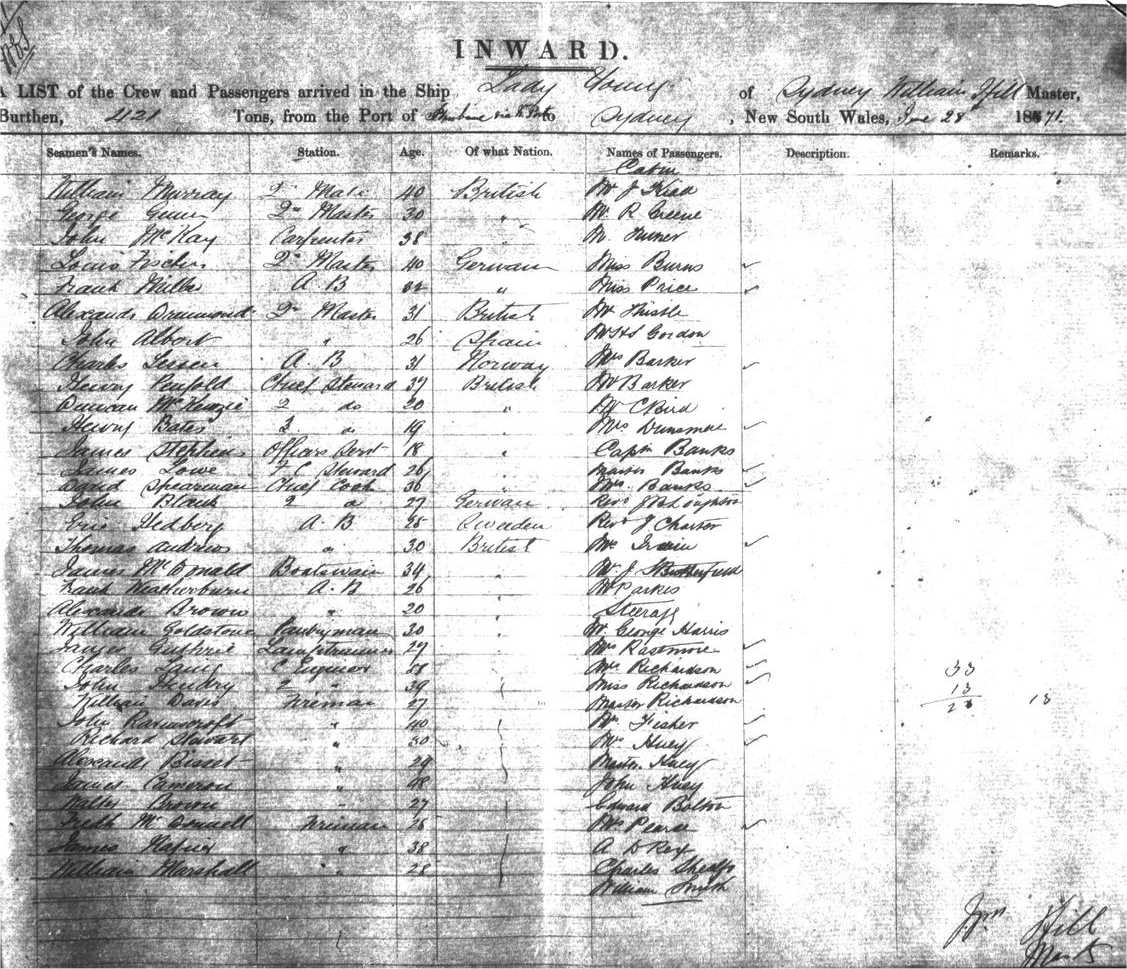 INWARD.
A LIST of the Crew and Passengers arrived in the Ship Lady Young of Sydney William Hill Master,
Burthen, 421 Tons, from the Port of Brisbane via to Sydney, New South Wales, June 28 1871.
Seamen's Names. Station. Age. Of what Nation. Names of Passengers. Description. Remarks.
Cabin
William Murray 2 Mate 40 British Mr J Kidd
George 2r Master 30 " Mr R Greene
John McKay Carpenter 38 " M. Turner
Louis Fischer 2r Master 40 German Miss Burns
Frank Miller A B " Miss Price
Alexandr Drummond 2r Master 31 British Mr Thistle
John Albert " 26 Spain Gordon
Charles A. B 31 Norway Mrs Barker
Henry Penfold Chief Steward 37 British Mr Barker
Duncan McKenzie 2 do 20 " Mr C Bird
Henry Bates 3 " 19 " Mrs Dunsmore
James Stephens Officers Servt 18 " Captn Banks
James Lowe F C Steward 26 " Master Banks
David Spearman Chief Cook 36 " Mrs Banks
John Blank 2 " 27 German Revd
Eric Hedberg A. B 28 Sweeden Revd J Charter
Thomas Andrews " 30 British Mrs Irwin
James McDonald Boatswain 34 " Mr J Rutherford
Frank Weatherburn A. B 26 " Mr Parkes
Alexandr Brown " 20 " Steerage
William Goldstone Pantryman 30 " Mr George Harris
Guthrie Lamptrimmer 27 " Mrs
Charles Lang C Engineer 28 Mrs Richardson
John Hendry 2 " 39 Miss Richardson 33
William Davis Fireman 27 Master Richardson 13
John Ravenscroft " 40 Mr Fisher
Richard Stewart " 30 Mrs Huey
Alexandr Bisset " 29 Master Huey
James Cameron " 48 John Huey
Walter Brown " 27 Edward Bolton
McDonnell Fireman 28 Mrs Pearce
James " 38 A D Rex
William Marshall " 28 Charles
William Smyth
Wm Hill